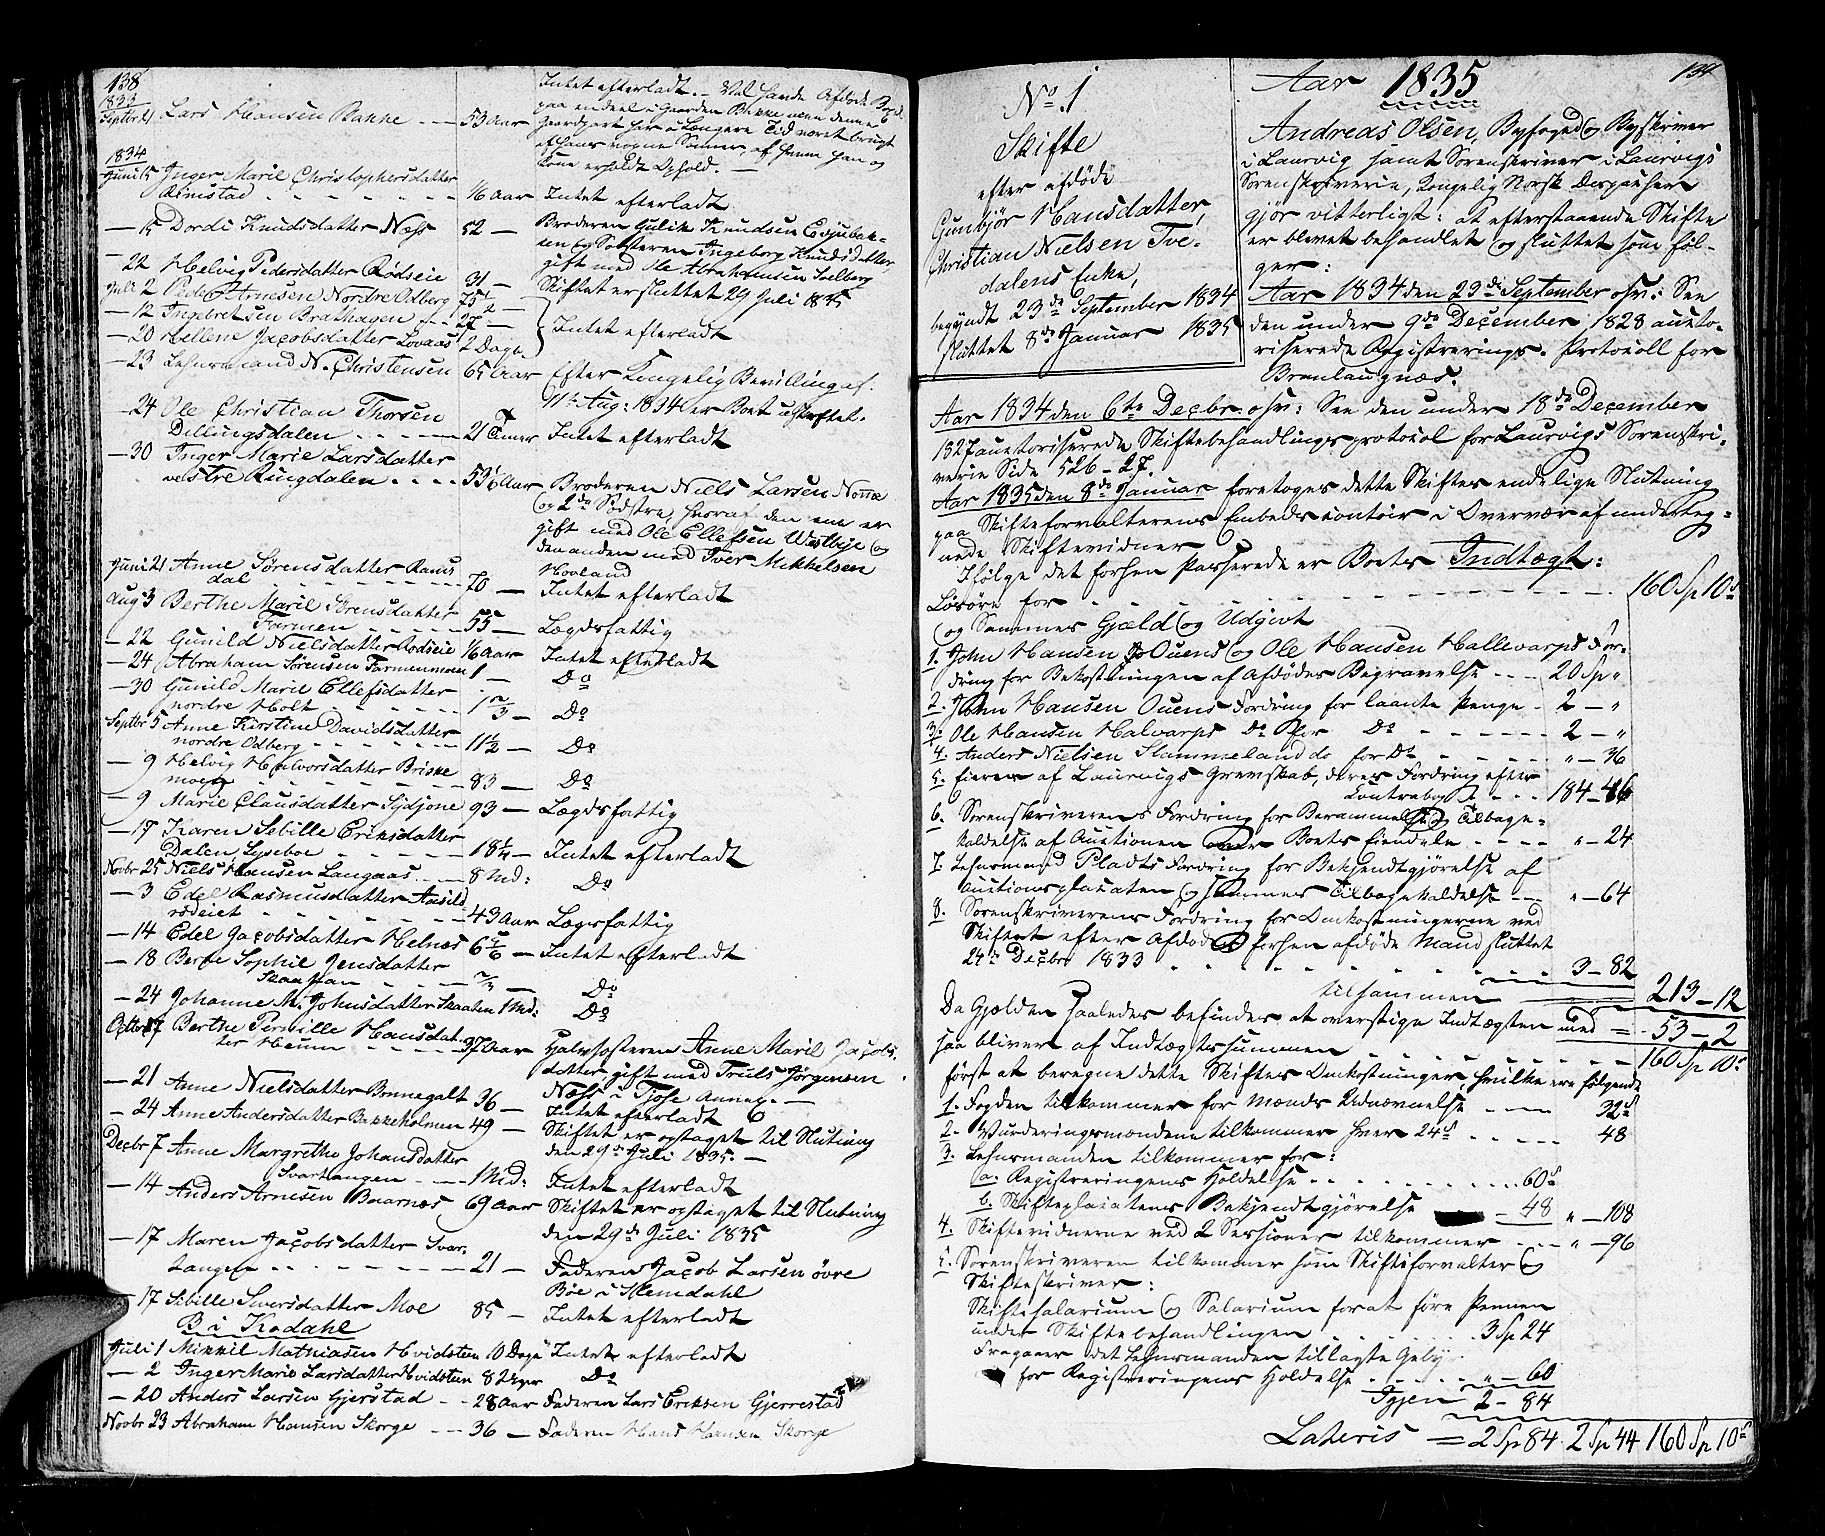 138
1833
Septbr 21 Lars Hansen Bakke - - 53 Aar Intet efterladt. - Vel havde Afdøde Bopæl
paa endeel i Gaarden Bakke men denne
Gaardpart har i længere Tid været brugt
af hans vogne Sønner, af hvem han og
Kone erholdt Ophold. -
1834
Juni 15 Inger Marie Christophersdatter
Rimstad - - - 16 Aar Intet efterladt
- 15 Dordi Knudsdatter Næss 52 - Broderen Gulik Knudsen
og Søsteren Ingeborg Knudsdatter,
gift med Ole Abrahamsen Solberg
- 22 Helvig Pedersdatter Rødseie 31 - Skiftet er sluttet 29 Juli 1835
Juli 2 Peder Arnesen Nordre Odberg 75½ -
- 12 Ingebret Brathagen - - 27 - Intet efterladt
- 20 Hellene Jacobsdatter Lovaas 2 Dage
- 23 Lehnsmand N. Christensen 65 Aar Efter Kongelig Bevilling af
11te Aug: 1834 er Boet uskiftet.
- 24 Ole Christian Thorsen
Dillingsdalen - - - 21 Timer Intet efterladt
- 30 Inger Marie Larsdatter
vestre Ringdalen - - - 53 Aar Broderen Niels Larsen
og 2de Søstre, hvoraf den ene er
gift med Ole Ellefsen Westbye og
den anden med Iver Mikkelsen
Hovland
Juni 21 Anne Sørensdatter Rams
dal - - - 70 - Intet efterladt
Aug 3 Berthe Marie Sørensdatter
Farmen - - - 55 - Lægdsfattig
- 22 Gunild Nielsdatter Rødseie 16 Aar Intet efterladt
- 24 Abraham Sørensen Farmenmoen 1 - Do
- 30 Gunild Marie Ellefsdatter
nordre Holt - - - Do
Septbr 5 Anne Kirstine Davidsdatter
nordre Odberg - - - 11½ - Do
- 9 Helvig Halvorsdatter Briske
moen - - - 83 - Do
- 9 Marie Clausdatter Sydjone 93 - Lægdsfattig
- 17 Karen Sebille Eriksdatter
Dalen Lysebo - - - 18¼ - Intet efterladt
Novbr 25 Niels Hansen Langaas - - 8 Md: Do
- 3 Edel Rasmusdatter Aasild
rødeiet - - - 43 Aar Lægsfattig
- 14 Edel Jacobsdatter Helnæs 6 5/6 - Intet efterladt
- 18 Berte Sophie Jensdatter
Skaattan - - - Do
- 24 Johanne M. Johnsdatter Skaaten 1 Md: Do
Octbr 17 Berthe Pernille Hansdat-
ter Heum - - - 37 Aar Halvsøsteren Anne Marie Jacobs-
datter gift med Truls Jørgensen
Næss i Tjose Annex. -
- 21 Anne Nielsdatter Brunegalt 36 - Intet efterladt
- 24 Anne Andersdatter Bakkeholmen 49 - Skiftet er optaget til Slutning
den 29de Juli 1835. -
Decbr 7 Anne Margrethe Johansdatter
Svartangen - - 1 Md: Intet efterladt
- 14 Anders Arnesen Baarnæs 69 Aar Skiftet er optaget til Slutning
den 29de Juli 1835
- 17 Maren Jacobsdatter Svar-
tangen - - - 21 - Faderen Jacob Larsen øvre
Bøe i Slemdahl
- 17 Sibille Siversdatter Moe 85 - Intet efterladt
B i Kodahl
Juli 1 Mikkil Mathiasen Hvidsten 10 Dage Intet efterladt
- 2 Inger Marie Larsdatter Hvidsten 8 Do
- 20 Anders Larsen Gjerstad - - 28 Aar Faderen Lars Eriksen Gjerrestad
Novbr 23 Abraham Hansen Skorge - - 36 - Faderen Hans Hansen Skorge
139
No. 1
Skifte
efter afdøde
Gunbjør Hansdatter,
Christian Nielsen Tve-
dalens Enke,
begyndt 23de September 1834
sluttet 8de Januar 1835
Aar 1835
Andreas Olsen, Byfoged og Byskriver
i Laurvig samt Sorenskriver i Laurvigs
Sorenskriverie, Kongelig Norsk
gjør vitterligt: at efterstaaende Skifte
er blevet behandlet og sluttet som føl-
ger:
Aar 1834 den 23de September o.s.v.: See
den under 9de December 1828 autho-
riserede Registrerings-Protocoll for
Brunlaugnæs.
Aar 1834 den 6te Decbr. o.s.v: See den under 18de December
1827 autoriserede Skiftebehandlingsprotocol for Laurvigs Sorenskri-
verie Side 526-27.
Aar 1835 den 8de Januar foretoges dette Skiftes endelige Slutning
paa Skifteforvalterens Embedscontoir i Overvær af underteg-
nede Skiftevidner
Ifølge det forhen Passerede er Boets Indtægt:
Løsøre for - - - 160 Sp 10 s
og Sammes Gjæld og Udgivt
1. John Hansen Ouens og Ole Hansen Hallevarps For-
dring for Bekostningen af Afdødes Begravelse - - - 20 Sp "
2. John Hansen Ouens Fordring for laante Penge - 2 - "
3. Ole Hansen Halvarps Do for Do - - - 2 - "
4. Anders Nielsen Stammeland do for Do - - - " - 36
5. Eieren af Laurvigs Grevskab, deres Fordring efter
Contrabog - - - 184 - 46
6. Sorenskriverens Fordring for Berammelse og Tilbage-
kaldelse af Auctionen over Boets Eiendele - - - " - 24
7. Lehnsmand Pladts Fordring for Bekjendtgjørelse af
Auctionsplacaten og sammes Tilbagekaldelse - - " - 64
8. Sorenskriverens Fordring for Omkostningerne ved
Skiftet efter Afdødes forhen afdøde Mand sluttet
24de Decbr 1833 - - - 3 - 82
tilsammen 213 - 12
Da Gjælden saaledes befindes at overstige Indtægten med = 53 - 2
saa bliver af Indtægtssummen - - - 160 Sp 10 s
først at beregne dette Skiftes Omkostninger, hvilke ere følgende
1. Fogden tilkommer for Mænds Udnævnelse - - - 32 s
2. Vurderingsmændene tilkommer hver 24 s - - - 48
3. Lehnsmanden tilkommer for:
a. Registreringens Holdelse - - - 60 s
b. Skifteplacatens Bekjendtgjørelse - 48 " - 108
4. Skiftevidnerne ved 2 Sessioner tilkommer - - - " - 96
5. Sorenskriveren tilkommer som Skifteforvalter og
Skifteskriver:
Skiftesalarium og Salarium for at føre Pennen
under Skiftebehandlingen - - - 3 Sp 24
Fragaaer det Lehnsmanden tillagte Gebyr
for Registreringens Holdelse - - - " - 60
Igjen 2 - 84
Lateris = 2 Sp 84. 2 Sp 44 160 Sp 10 s